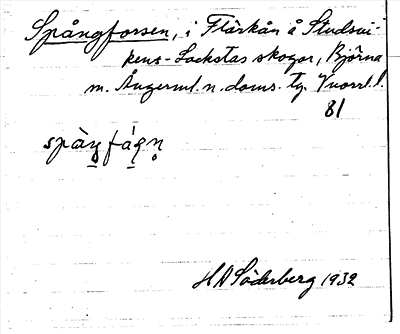 Spångforsen, i Flärkån å Studsvi-
kens-Lockstas skogar, Björna
m. Ångerml. n. doms. tg. Vuorrl. l.
81
spàŋfáṣn̥
H N Söderberg 1932